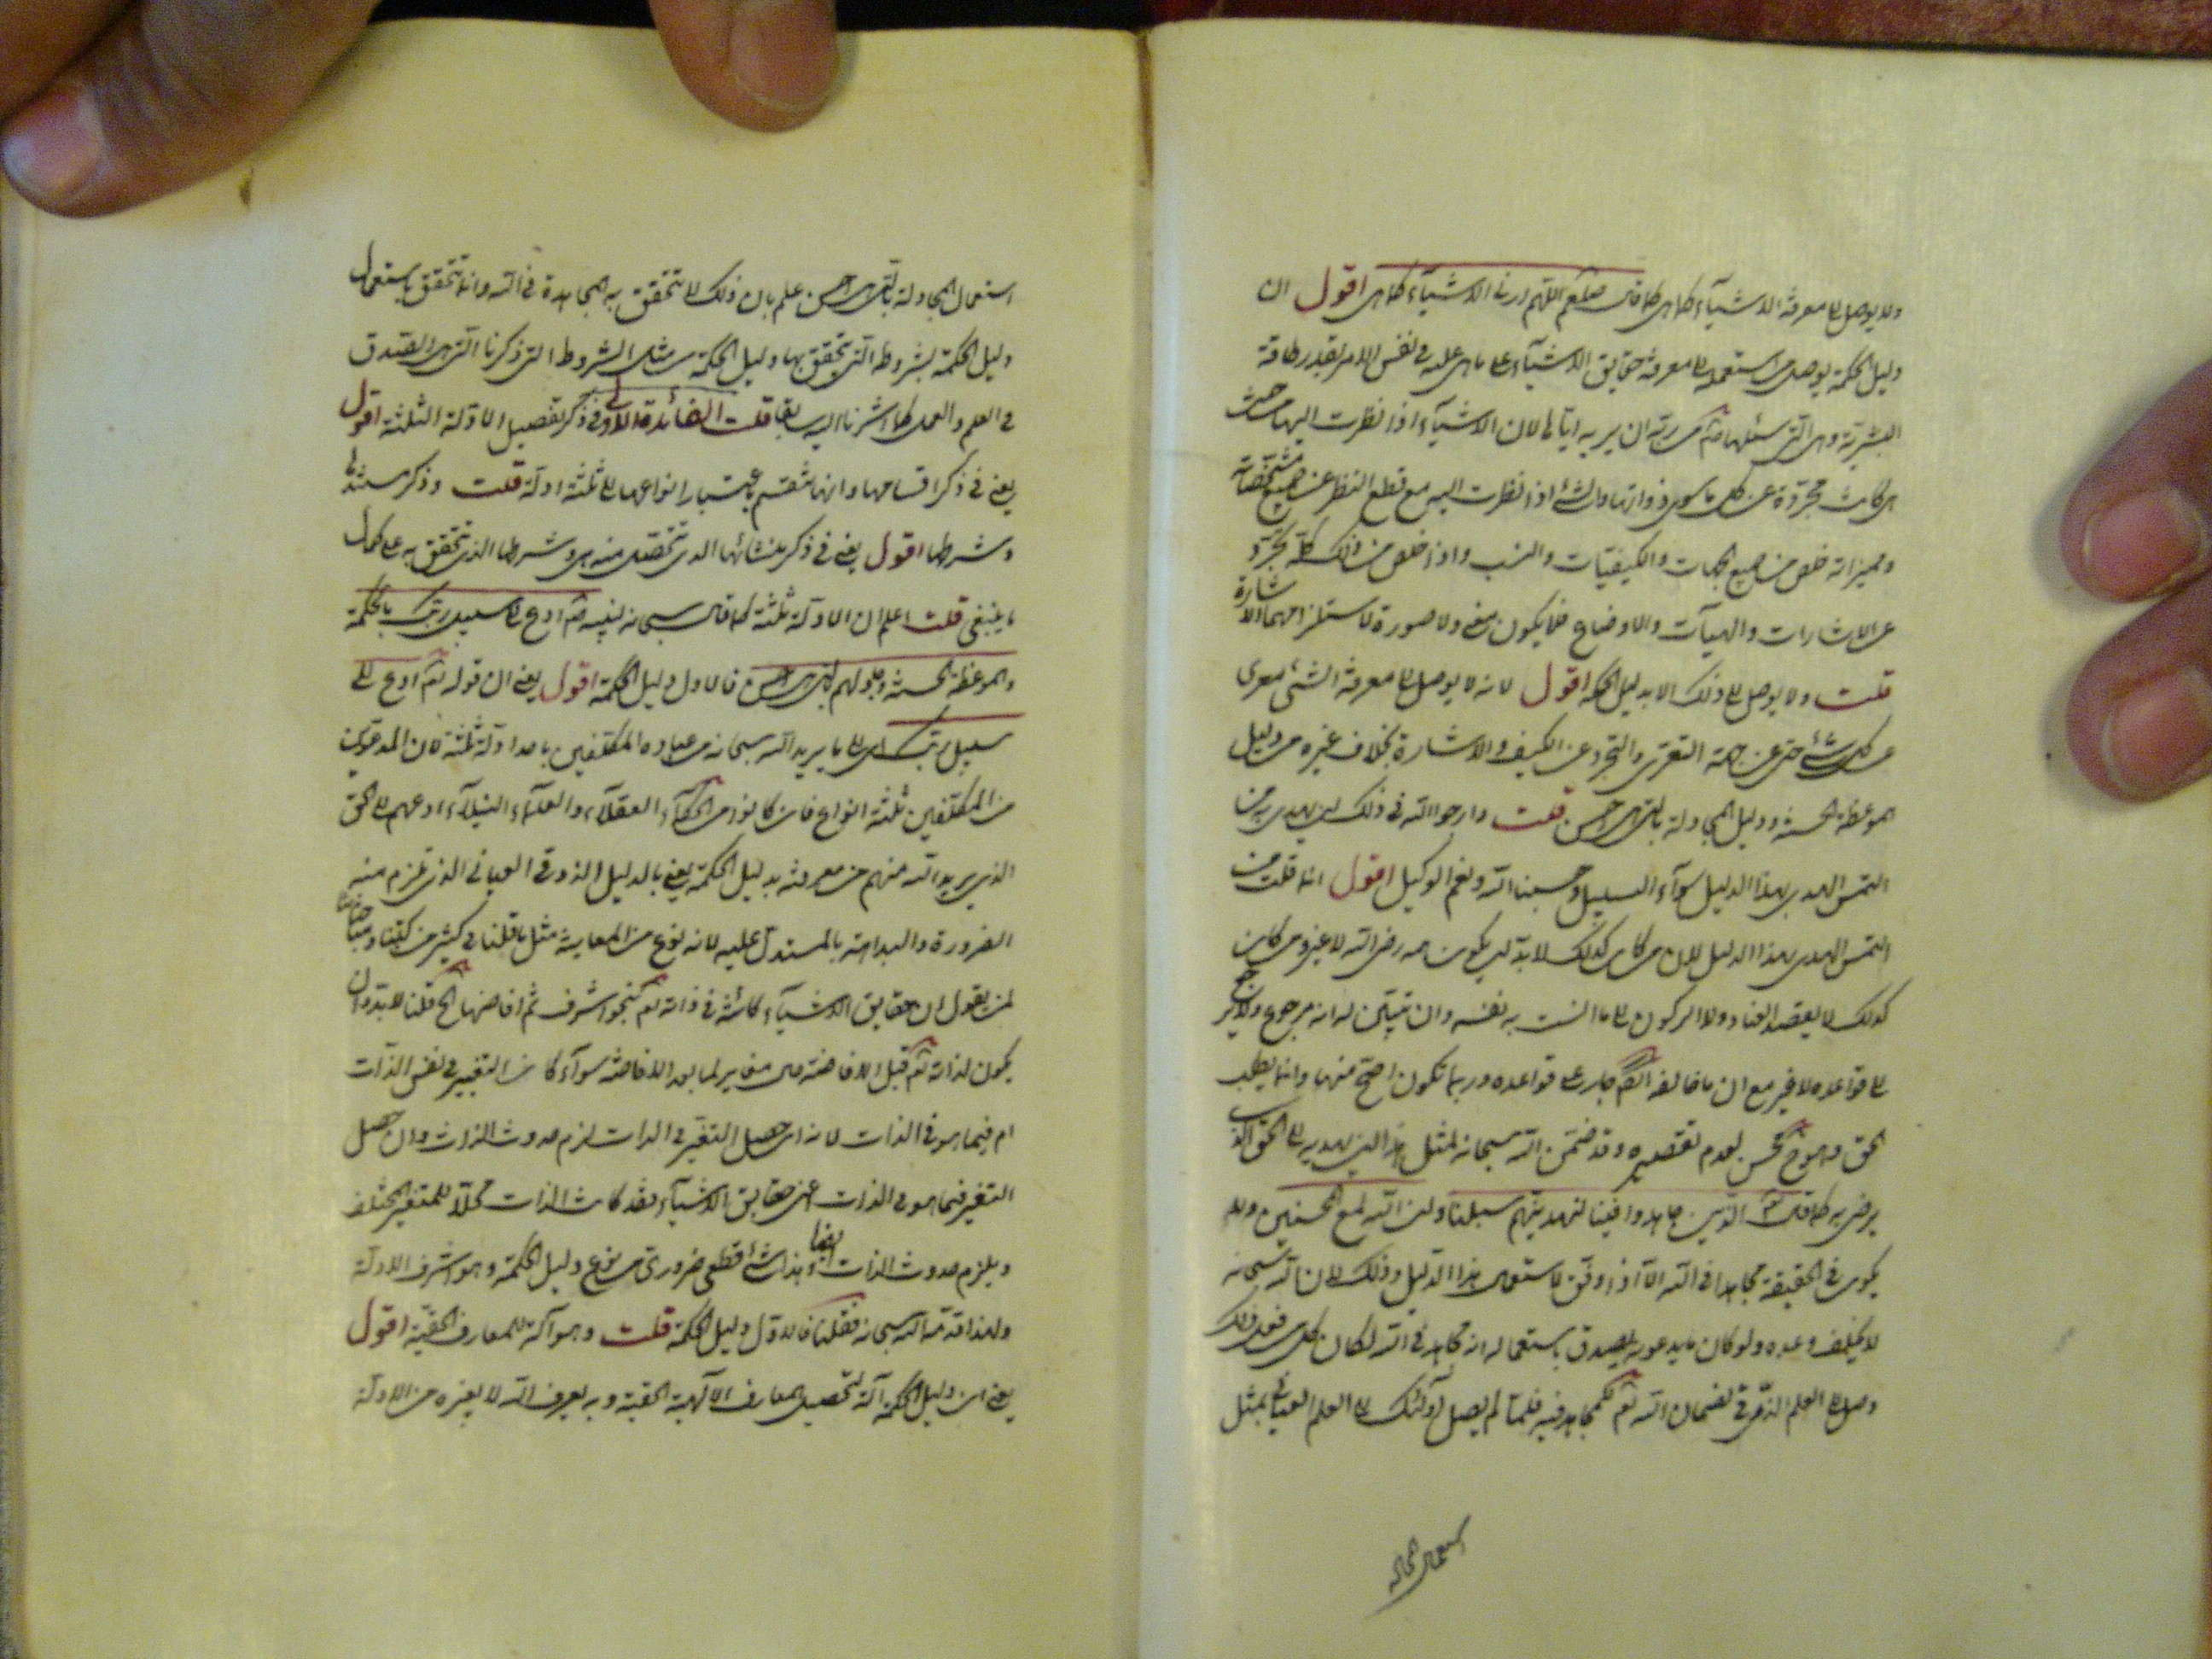 ولا يوصل الى معرفة الاشياء كما هى كما قال صلعم اللهم ارنى الاشياء كما هى اقول ان
دليل الحكمة يوصل من استعمله الى معرفة حقايق الاشياء على ما هى عليه فى نفس الامر بقدر طاقة
البشرية وهى التى سئلها من ربه ان يريه اياها لان الاشياء اذا نظرت اليها من حيث
هى كانت مجردة عن كل ما سوى ذواتها والشئ اذا نظرت اليه مع قطع النظر عن جميع مشخصاته
ومميزاته خلص من جميع الجهات والكيفيات والنسب واذا خلص من ذلك كله تجرد
عن الاشارات والهيآت والاوضاع فلا يكون معنى ولا صورة لاستلزامهما الاشارة
قلت ولا يوصل الى ذلك الا بدليل الحكمة اقول لانه لا يوصل الى معرفة الشئ معرى
عن كل شئ حتى عن جهة التعرى والتجرد عن الكيف والاشارة بخلاف غيره من دليل
الموعظة الحسنة ودليل المجادلة بالتى هى احسن قلت وارجو الله فى ذلك ان يهدى به من
التمس الهدى بهذا الدليل سواء السبيل وحسبنا الله ونعم الوكيل اقول انما قلت من
التمس الهدى بهذا الدليل لان من كان كذلك لابد ان يكون همه رضى الله لا غير ومن كان
كذلك لا يقصد العناد ولا الركون الى ما انست به نفسه وان تبين له انه مرجوح ولا يرجع
الى قواعده لا غير مع ان ما خالفه جار على قواعده وربما تكون اصح منها وانما يطلب
الحق وهو محسن لعدم تقصيره وقد ضمن الله سبحانه لمثل هذا ان يهديه الى الحق الذى
يرضى به كما قال تعالى الذين جاهدوا فينا لنهدينهم سبلنا وان الله لمع المحسنين ولا
يكون فى الحقيقة مجاهدا فى الله الا اذا وفق لاستعمال هذا الدليل وذلك لان الله سبحانه
لا يخلف وعده ولو كان ما يدعونه يصدق باستعماله انه مجاهد فى الله لكان كل من فعل ذلك
وصل الى العلم الذوقى لضمان الله تعالى للمجاهد فيه فلما لم يصل اولئك الى العلم العيانى بمثل
استعمال المجادلة
استعمال المجادلة بالتى هى احسن علم بان ذلك لا تتحقق به المجاهدة فى الله وانما تتحقق باستعمال
دليل الحكمة بشروطه التى يتحقق بها دليل الحكمة من مثل الشروط التى ذكرنا التى هى الصدق
فى العلم والعمل كما اشرنا اليه سابقا قلت الفائدة الاولى فى ذكر تفصيل الادلة الثلثة اقول
يعنى فى ذكر اقسامها وانها تنقسم باعتبار انواعها الى ثلثة ادلة قلت وذكر مستندها
وشرطها اقول يعنى فى ذكر منشائها الذى تتحصل منه هى وشرطها الذى تتحقق به على كمال
ما ينبغى قلت اعلم ان الادلة ثلثة كما قال سبحانه لنبيه ادع الى سبيل ربك بالحكمة
والموعظة الحسنة وجادلهم بالتى هى احسن فالاول دليل الحكمة اقول يعنى ان قوله تعالى ادع الى
سبيل ربك اى الى ما يريد الله سبحانه من عباده المكلفين باحد ادلة ثلثة لان المدعوين
من المكلفين ثلثة انواع فان كانوا من الحكماء العقلاء والعلماء النبلاء ادعهم الى الحق
الذى يريد الله منهم من معرفته بدليل الحكمة يعنى بالدليل الذوقى العيانى الذى تلزم منه
الضرورة والبداهة بالمستدل عليه لانه نوع من المعاينة مثل ما قلنا فى كثير من كتبنا ومباحثاتنا
لمن يقول ان حقايق الاشياء كائنة فى ذاته تعالى بنحو اشرف ثم افاضها الخ قلنا لابد وان
يكون لذاته تعالى قبل الافاضة حال مغاير لما بعد الافاضة سواء كان التغيير فى نفس الذات
ام فيما هو فى الذات لانه ان حصل التغير فى الذات لزم حدوث الذات وان حصل
التغير فيما هو فى الذات اعنى حقايق الاشياء فقد كانت الذات محلا للمتغير المختلف
ويلزم حدوث الذات ايضا وهذا شئ قطعى ضرورى من نوع دليل الحكمة وهو اشرف الادلة
ولهذا قدمه الله سبحانه فقلنا فالاول دليل الحكمة قلت وهو آلة للمعارف الحقية اقول
يعنى ان دليل الحكمة آلة لتحصيل المعارف الالهية الحقية وبه يعرف الله لا بغيره من الادلة